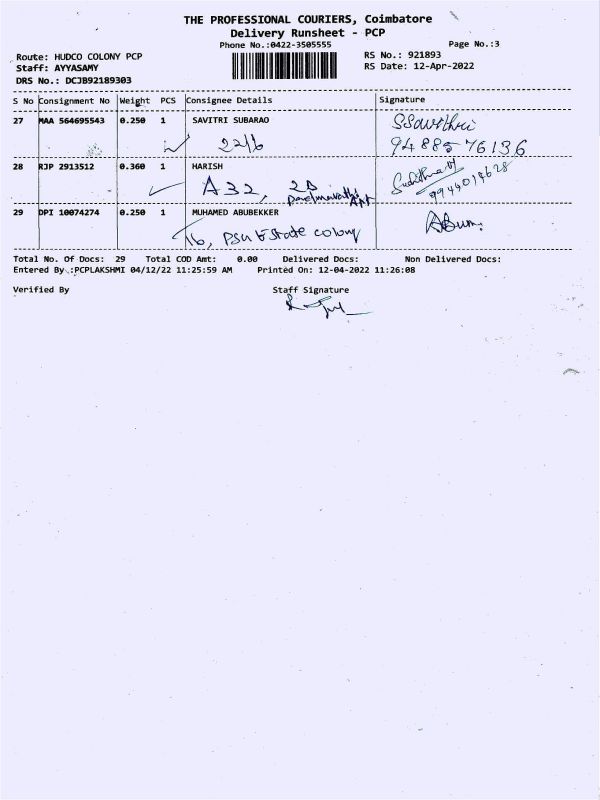 THE PROFESSIONAL COURIERS, Coimbatore
Delivery Runsheet - PCP
Phone No.:0422-3505555
Page No.:3
Route: HUDCO COLONY PCP
RS No.: 921893
Staff: AYYASAMY
RS Date: 12-Apr-2022
DRS No.: DCJB92189303
S No Consignment No Weight PCS Consignee Details Signature
27 MAA 564695543 0.250 1 SAVITRI SUBARAO
22/6
9488576136
28 RJP 2913512 0.360 1 HARISH
A32, 2B
Apt
9944018628
29 DPI 10074274 0.250 1 MUHAMED ABUBEKKER
16, PSG Estate colony
Total No. Of Docs: 29 Total COD Amt: 0.00 Delivered Docs: Non Delivered Docs:
Entered By.:PCPLAKSHMI 04/12/22 11:25:59 AM Printed On: 12-04-2022 11:26:08
Verified By Staff Signature